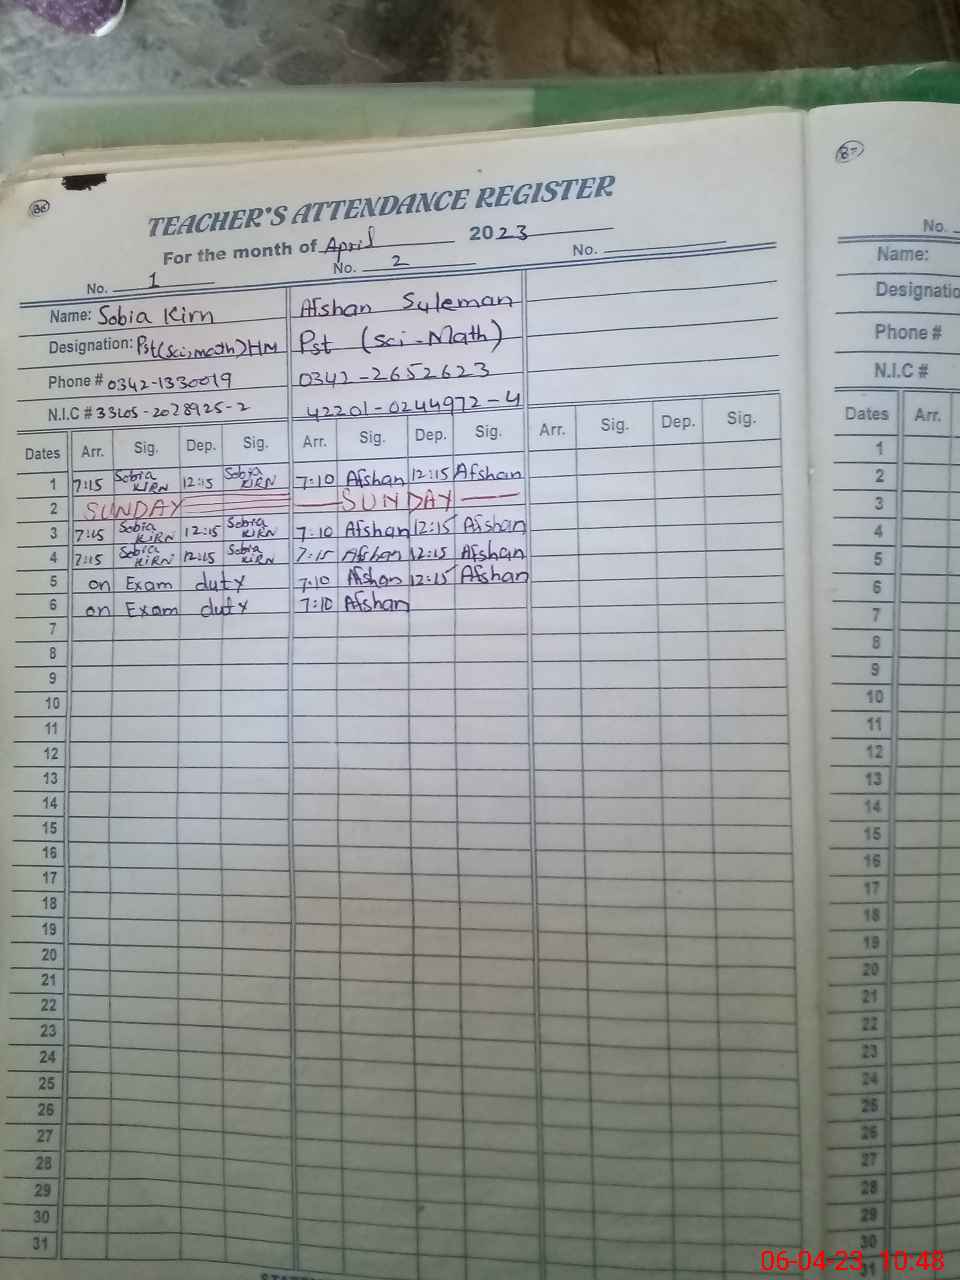 86
87
TEACHER'S ATTENDANCE REGISTER
For the month of April 2023
No. 1 No. 2 No.
Name: Sobia Kirn Afshan Suleman
Designation: Pst(sci,math)HM Pst (Sci-Math)
Phone # 0342-1330019 0342-2652623
N.I.C # 33605-2028925-2 42201-0244972-4
Dates Arr. Sig. Dep. Sig. Arr. Sig. Dep. Sig. Arr. Sig. Dep. Sig.
1 7:15 Sobia KIRN 12:15 Sobia KIRN 7:10 Afshan 12:15 Afshan
2 SUNDAY SUNDAY
3 7:15 Sobia KiRN 12:15 Sobia KIRN 7:10 Afshan 12:15 Afshan
4 7:15 Sobia KiRN 12:15 Sobia KiRN 7:15 Afshan 12:15 Afshan
5 on Exam duty 7:10 Afshan 12:15 Afshan
6 on Exam duty 7:10 Afshan
7
8
9
10
11
12
13
14
15
16
17
18
19
20
21
22
23
24
25
26
27
28
29
30
31
No.
Name:
Designatio
Phone #
N.I.C #
Dates Arr.
1
2
3
4
5
6
7
8
9
10
11
12
13
14
15
16
17
18
19
20
21
22
23
24
25
26
27
28
29
30
31
06-04-23 10:48